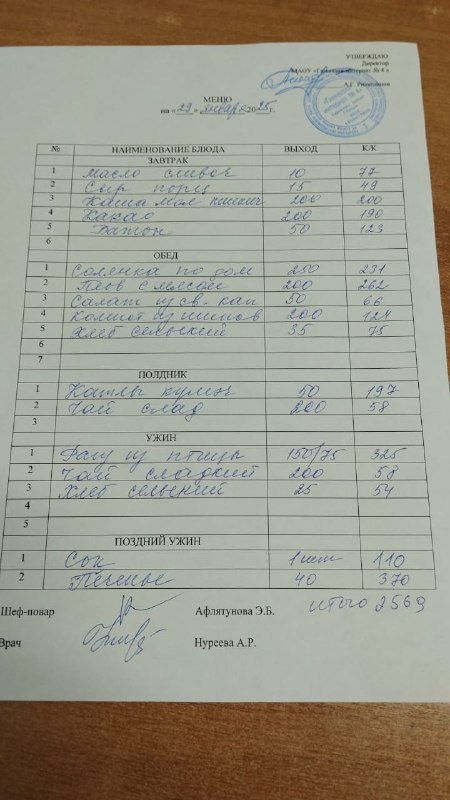 УТВЕРЖДАЮ
Директор
МАОУ «Гимназия-интернат № 4»
А.Г.
МЕНЮ
на « 29 » января 2025г.
№ НАИМЕНОВАНИЕ БЛЮДА ВЫХОД К/К
ЗАВТРАК
1 Масло сливоч 10 77
2 Сыр порц 15 49
3 Каша мол пшенич 200 200
4 Какао 200 190
5 Батон 50 123
6
ОБЕД
1 Солянка по дом 250 231
2 Плов с мясом 200 262
3 Салат из св. кап 50 66
4 Компот из 200 124
5 Хлеб сельский 35 75
6
7
ПОЛДНИК
1 50 197
2 Чай слад 200 58
3
УЖИН
1 Рагу из птицы 150/75 325
2 Чай сладкий 200 58
3 Хлеб сельский 25 54
4
5
ПОЗДНИЙ УЖИН
1 Сок 1 шт 110
2 Печенье 40 370
Шеф-повар Афлятунова Э.Б. итого 2569
Врач Нуреева А.Р.